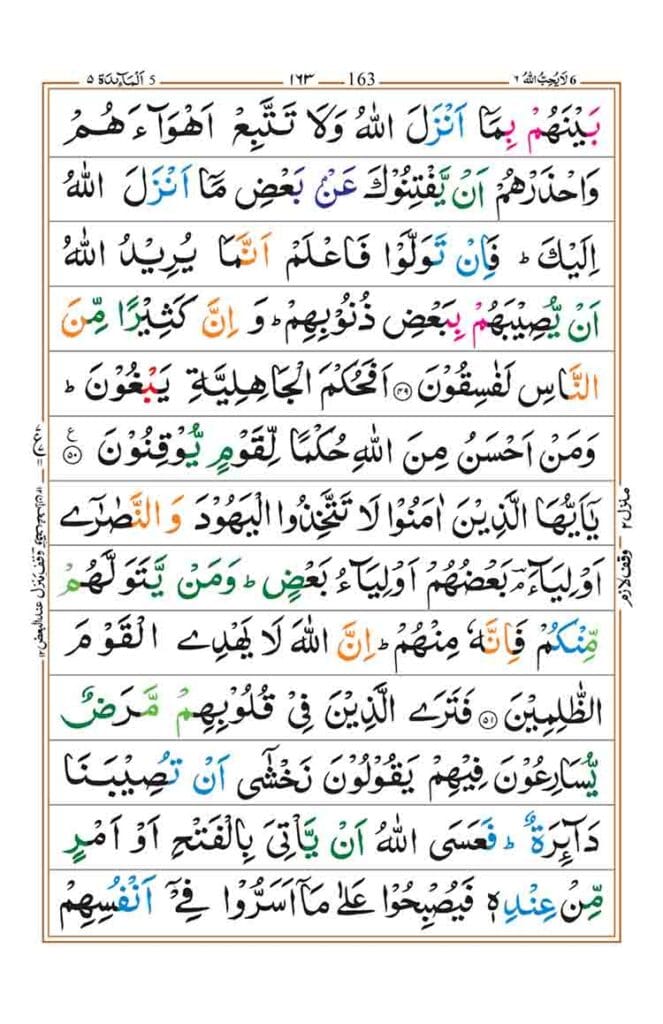 6 لَا يُحِبُّ اللهُ ٦ 163 ١٦٣ 5 اَلْمَآئِدَة ٥
بَيْنَهُمْ بِمَاۤ اَنْزَلَ اللهُ وَلَا تَتَّبِعْ اَهْوَآءَهُمْ
وَاحْذَرْهُمْ اَنْ يَّفْتِنُوْكَ عَنْۢ بَعْضِ مَاۤ اَنْزَلَ اللهُ
اِلَيْكَ ؕ فَاِنْ تَوَلَّوْا فَاعْلَمْ اَنَّمَا يُرِيْدُ اللهُ
اَنْ يُّصِيْبَهُمْ بِبَعْضِ ذُنُوْبِهِمْ ؕ وَ اِنَّ كَثِيْرًا مِّنَ
النَّاسِ لَفٰسِقُوْنَ ۝٤٩ اَفَحُكْمَ الْجَاهِلِيَّةِ يَبْغُوْنَ ؕ
وَمَنْ اَحْسَنُ مِنَ اللهِ حُكْمًا لِّقَوْمٍ يُّوْقِنُوْنَ ۝٥٠ ع
يٰۤاَيُّهَا الَّذِيْنَ اٰمَنُوْا لَا تَتَّخِذُوا الْيَهُوْدَ وَ النَّصٰرٰۤى
اَوْلِيَآءَ ۘؔ بَعْضُهُمْ اَوْلِيَآءُ بَعْضٍ ؕ وَمَنْ يَّتَوَلَّهُمْ
مِّنْكُمْ فَاِنَّهٗ مِنْهُمْ ؕ اِنَّ اللهَ لَا يَهْدِى الْقَوْمَ
الظّٰلِمِيْنَ ۝٥١ فَتَرَى الَّذِيْنَ فِىْ قُلُوْبِهِمْ مَّرَضٌ
يُّسَارِعُوْنَ فِيْهِمْ يَقُوْلُوْنَ نَخْشٰۤى اَنْ تُصِيْبَنَا
دَآئِرَةٌ ؕ فَعَسَى اللهُ اَنْ يَّاْتِىَ بِالْفَتْحِ اَوْ اَمْرٍ
مِّنْ عِنْدِهٖ فَيُصْبِحُوْا عَلٰى مَاۤ اَسَرُّوْا فِىْۤ اَنْفُسِهِمْ
منزل ٢
وقف لازم